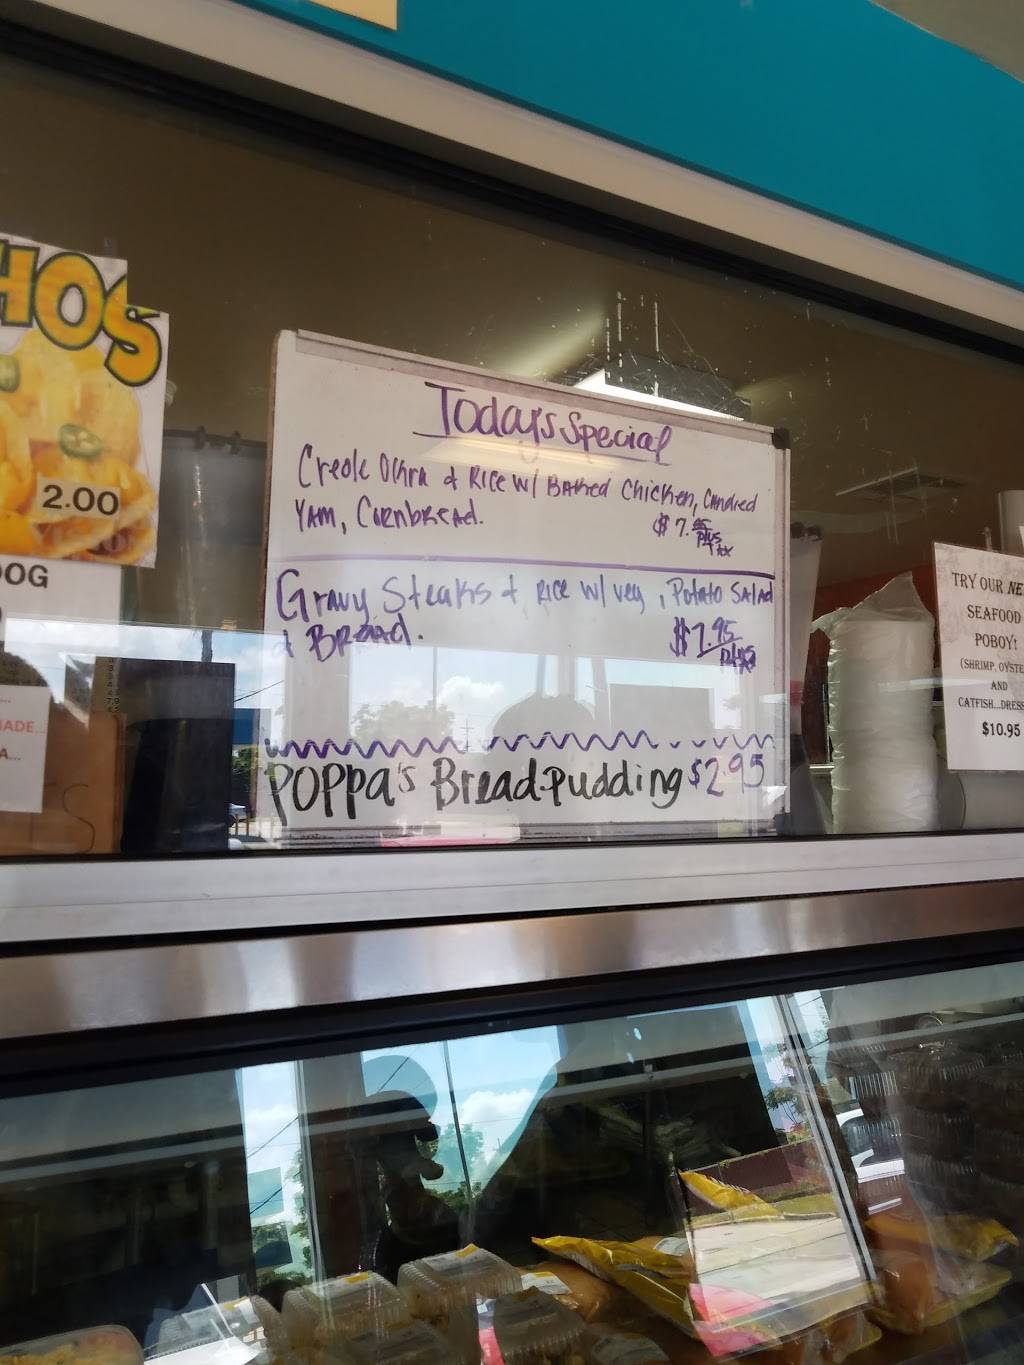 HOS
2.00
OOG
ADE...
A...
Today's Special
Creole Okra & Rice w/ Baked Chicken, Candied
Yam, Cornbread.
$7.95
plus
Tax
Gravy Steaks & Rice w/ Veg, Potato Salad
& Bread.
$7.95
plus
Poppa's Bread-pudding $2.95
TRY OUR NE
SEAFOOD
POBOY!
(SHRIMP, OYSTE
AND
CATFISH...DRESS
$10.95